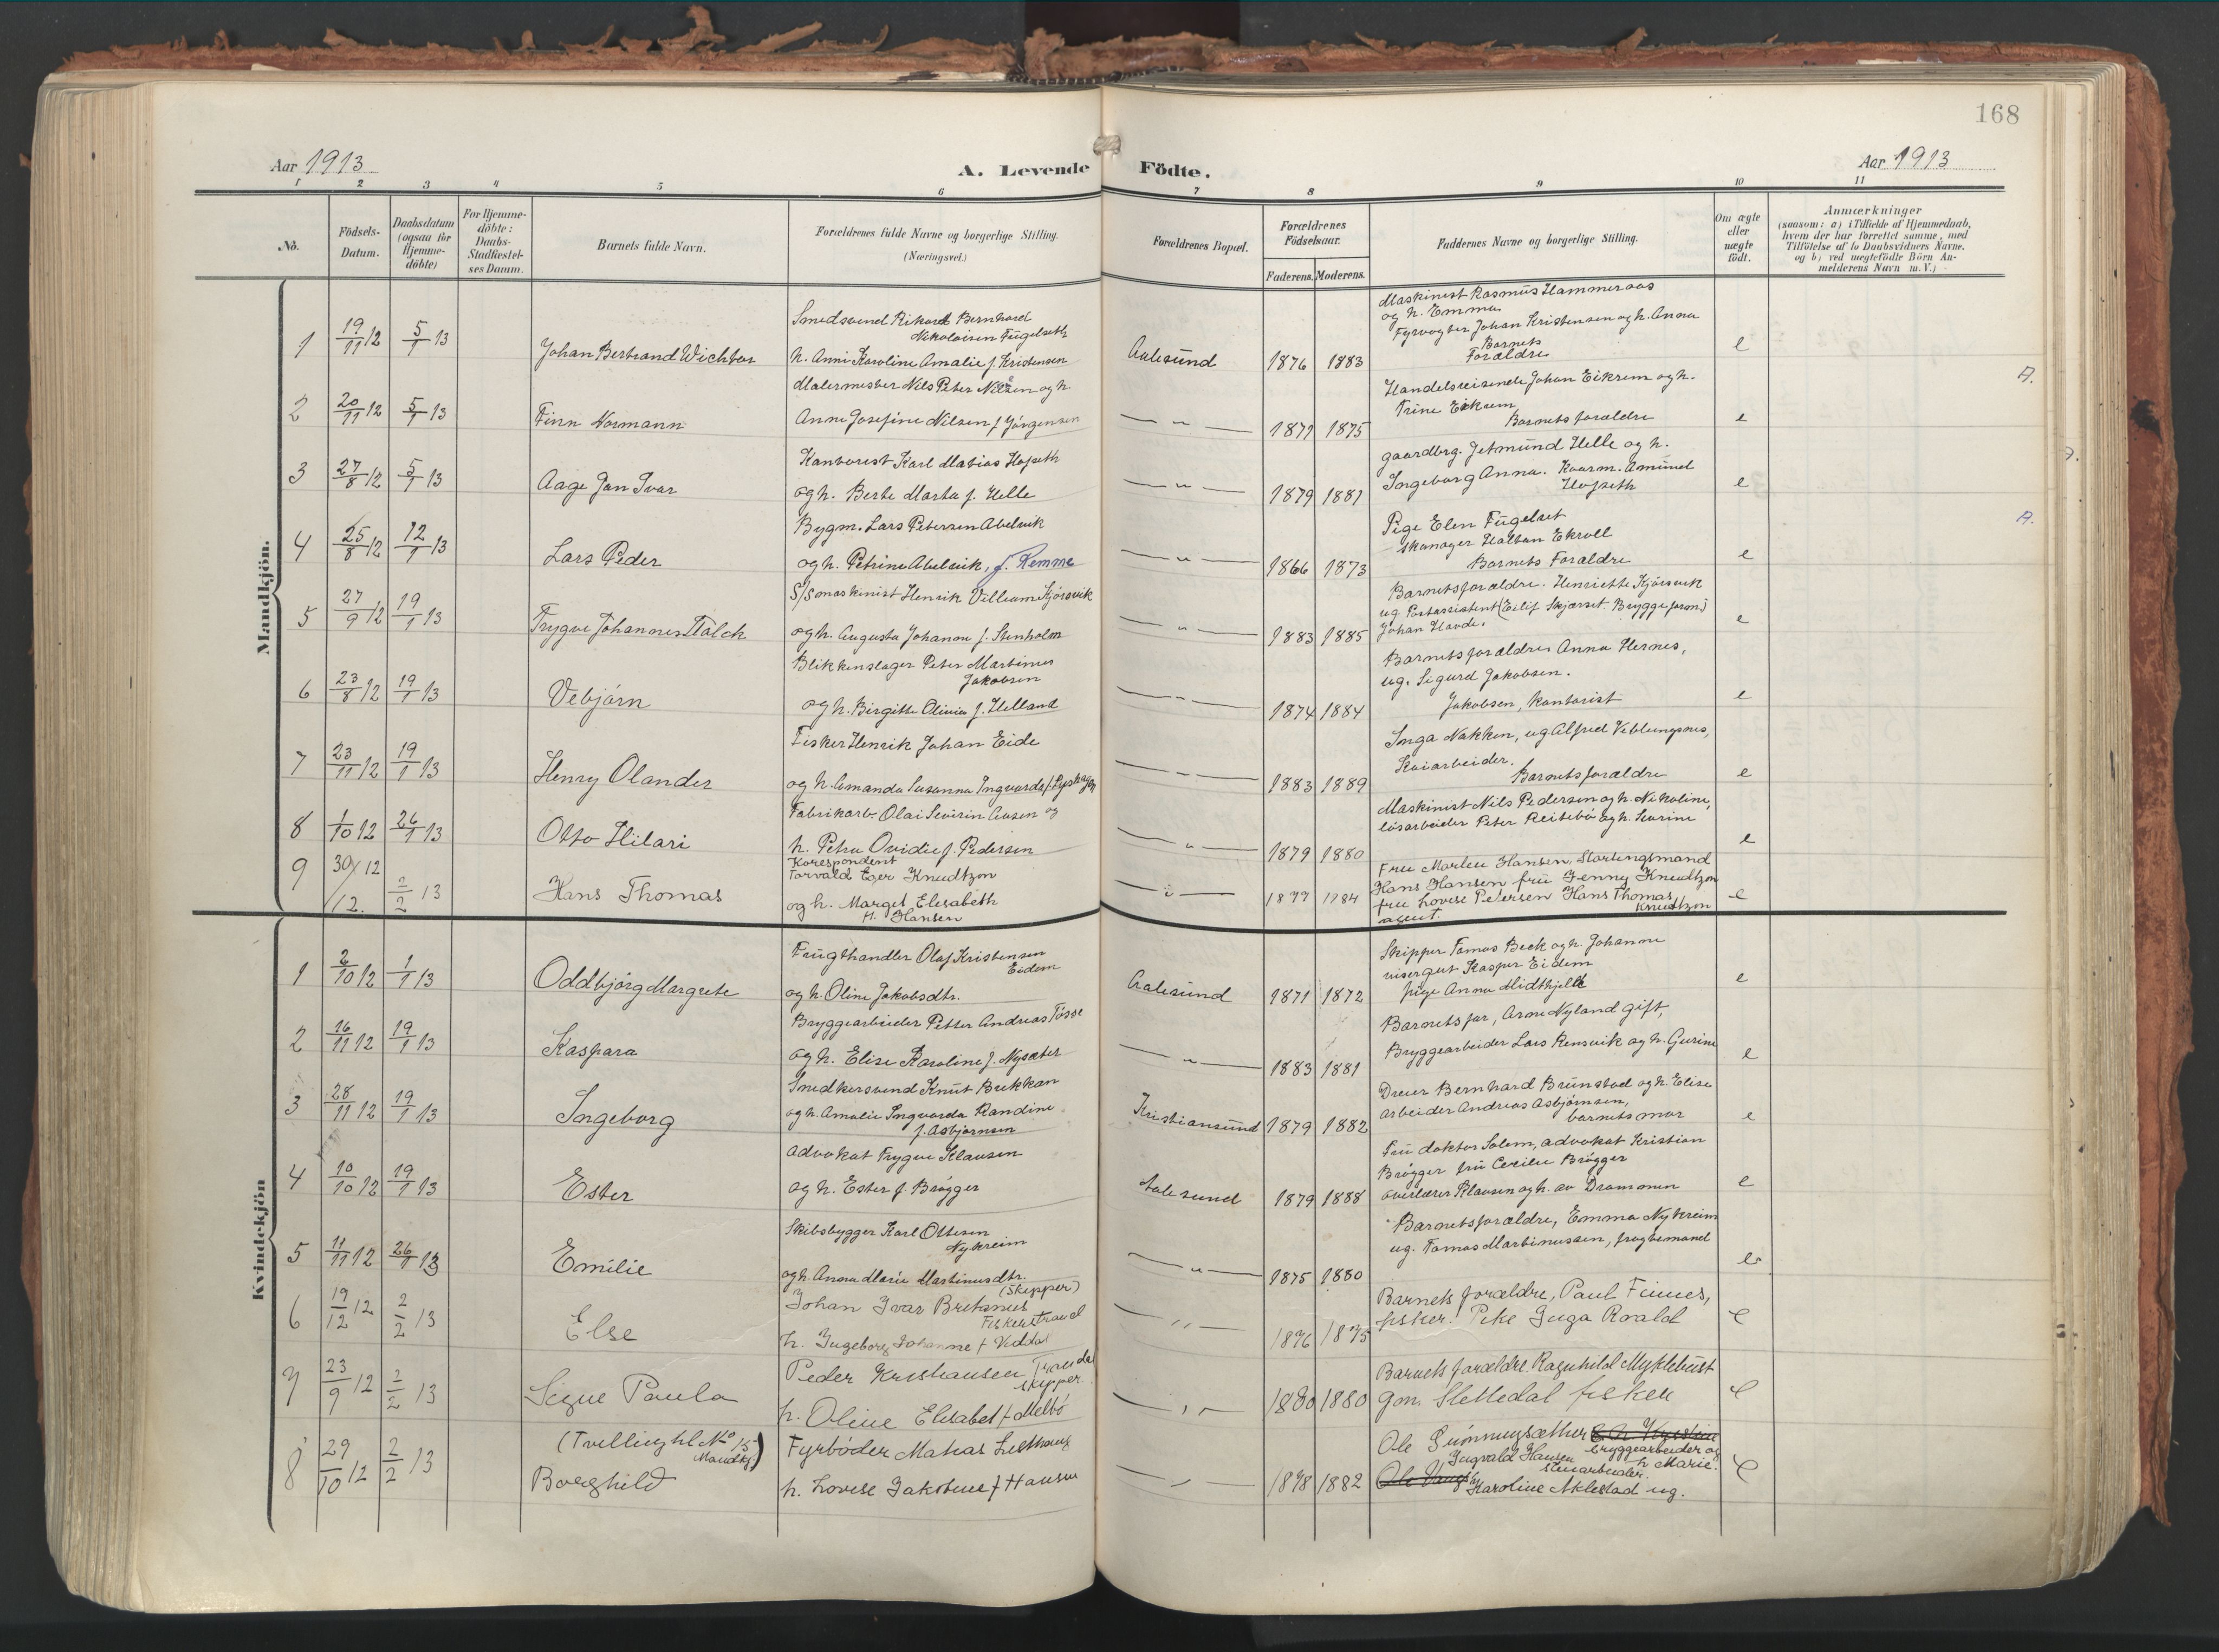 168
Aar 1913
A. Levende Födte.
Aar 1913
1 2 3 4 5 6 7 8 9 10 11
No.
Födsels-Datum.
Daabsdatum (ogsaa for Hjemme-döbte)
For Hjemme-döbte: Daabs-Stadfæstel-ses Datum.
Barnets fulde Navn.
Forældrenes fulde Navne og borgerlige Stilling.
(Næringsvei.)
Forældrenes Bopæl.
Forældrenes Födselsaar.
Faderens. Moderens.
Faddernes Navne og borgerlige Stilling.
Om ægte eller uægte födt.
Anmærkninger
(saasom: a) i Tilfælde af Hjemmedaab,
hvem der har forrettet samme, med
Tilföielse af to Daabsvidners Navne,
og b) ved uægtefödte Börn An-
melderens Navn m. V.)
Mandkjön.
1 19/11 12 5/1 13 Johan Bertrand Wichtor
Smedsvend Rikard Bernhard
Nikolaisen Fügelseth
h. Anni Karoline Amalie f. Kristensen
Aalesund 1876 1883
Maskinist Rasmus Hammeraas
og h. Emma
Fyrvogter Johan Kristensen og h. Anna
Barnets
Forældre
e
2 20/11 12 5/1 13 Finn Normann
Malermester Nils Peter Nilsen og h.
Anne Josefine Nilsen f. Jörgensen
— " — 1871 1875
Handelsreisende Johan Eikrem og h.
Trine Eikrem
Barnets forældre
e
A.
3 27/8 12 5/1 13 Aage Jan Ivar
Kontorist Karl Matias Hofseth
og h. Berte Marta f. Helle
— " — 1879 1881
gaardbrg. Jetmund Helle og h.
Ingeborg Anna. Kaarm. Amund
Hofseth
e
4 25/8 12 12/1 13 Lars Peder
Bygm. Lars Petersen Abelvik
og h. Petrine Abelvik, f. Remme
— " — 1866 1873
Pige Elen Fügelset
Skomager Halvan Ekroll
Barnets Forældre
e
A.
5 27/9 12 19/1 13 Trygve Johannes Falck
S/S maskinist Henrik Villiam Kjörsvik
og h. Augusta Johanna f. Stenholm
— " — 1883 1885
Barnets forældre. Henriette Kjörsvik
ug. Postassistent (Eilif Skjærset. Bryggeform.)
Johan Havde.
e
6 23/8 12 19/1 13 Vebjörn
Blikkenslager Peter Martinus
Jakobsen
og h. Birgitte Olivia f. Helland
— " — 1874 1884
Barnets forældre Anna Hernes,
ug. Sigurd Jakobsen.
Jakobsen, kontorist
e
7 23/11 12 19/1 13 Henry Olander
Fisker Henrik Johan Eide
og h. Amanda Susanna Ingvarda f. Lyshagen
— " — 1883 1889
Inga Nakken, ug Alfred Veblungsnes,
Kaiarbeider.
Barnets forældre
e
8 1/10 12 26/1 13 Otto Hilari
Fabrikarb. Olai Severin Aasen og
h. Petra Ovidie f. Pedersen
— " — 1879 1880
Maskinist Nils Pedersen og h. Nikoline,
lösarbeider Peter Reitebö og h. Severine
e
9 30/12 12. 2/2 13 Hans Thomas
Korespondent
Torvald Eger Knudtzon
og h. Marget Elesabeth
f. Hansen
— " — 1877 1884
Fru Marlen Hansen, Stortingsmand
Hans Hansen frü Jenny Knudtzon
frü Lovise Petersen Hans Thomas
Knudtzon
agent.
e
Kvindekjön
1 2/10 12 1/1 13 Oddbjörg Margrete
Frugthandler Olaf Kristensen
Eidem
og h. Oline Jakobsdtr.
Aalesund 1871 1872
Skipper Tomas Beck og h. Johanne
visergut Kasper Eidem
pige Anna Midthjell
e
2 16/11 12 19/1 13 Kaspara
Bryggearbeider Petter Andreas Tösse
og h. Elise Karoline f. Nysæter
— " — 1883 1881
Barnets far, Arne Nyland gift,
Bryggearbeider Lars Rensvik og h. Gurine
e
3 28/11 12 19/1 13 Ingeborg
Snedkersvend Knut Brekkan
og h. Amalie Ingvarda Randine
f. Asbjørnsen
Kristiansund 1879 1882
Dreier Bernhard Brunstad og h. Elise
arbeider Andreas Asbjørnsen,
barnets mor
e
4 10/10 12 19/1 13 Ester
Advokat Trygve Klausen
og h. Ester f. Brögger
Aalesund 1879 1888
Frü doktor Solem, advokat Kristian
Brögger frü Cecilie Brögger
overlærer Klausen og h. av Drammen
e
5 11/11 12 26/1 13 Emilie
Skibsbygger Karl Ottesen
Nykreim
og h. Anna Marie Martinusdtr.
— " — 1875 1880
Barnets forældre, Emma Nykreim
ug. Tomas Martinussen, fragtemand
e
6 19/12 12 2/2 13 Else
(Skipper)
Johan Ivar Bretanus
Fiskerstrand
h. Ingeborg Johanne f Viddal
— " — 1876 1875
Barnets forældre, Paul Finnes,
fisker. Pike Inga Roald
e
7 23/9 12 2/2 13 Signe Paula
Peder Kristiansen Trandal
skipper.
h. Oline Elesabet f. Melbö
— " — 1880 1880
Barnets forældre. Ragnhild Myklebust
gm. Slettedal fisker
e
8 29/10 12 2/2 13
(Tvilling hl. No 15
Mandkj.)
Borghild
Fyrböder Matias
h. Lovise Jakobine f Hansen
— " — 1878 1882
Ole Sunningsæther
bryggearbeider og
Ingvald Hansen h Marie.
stuearbeider.
Karoline Aklestad ug.
e